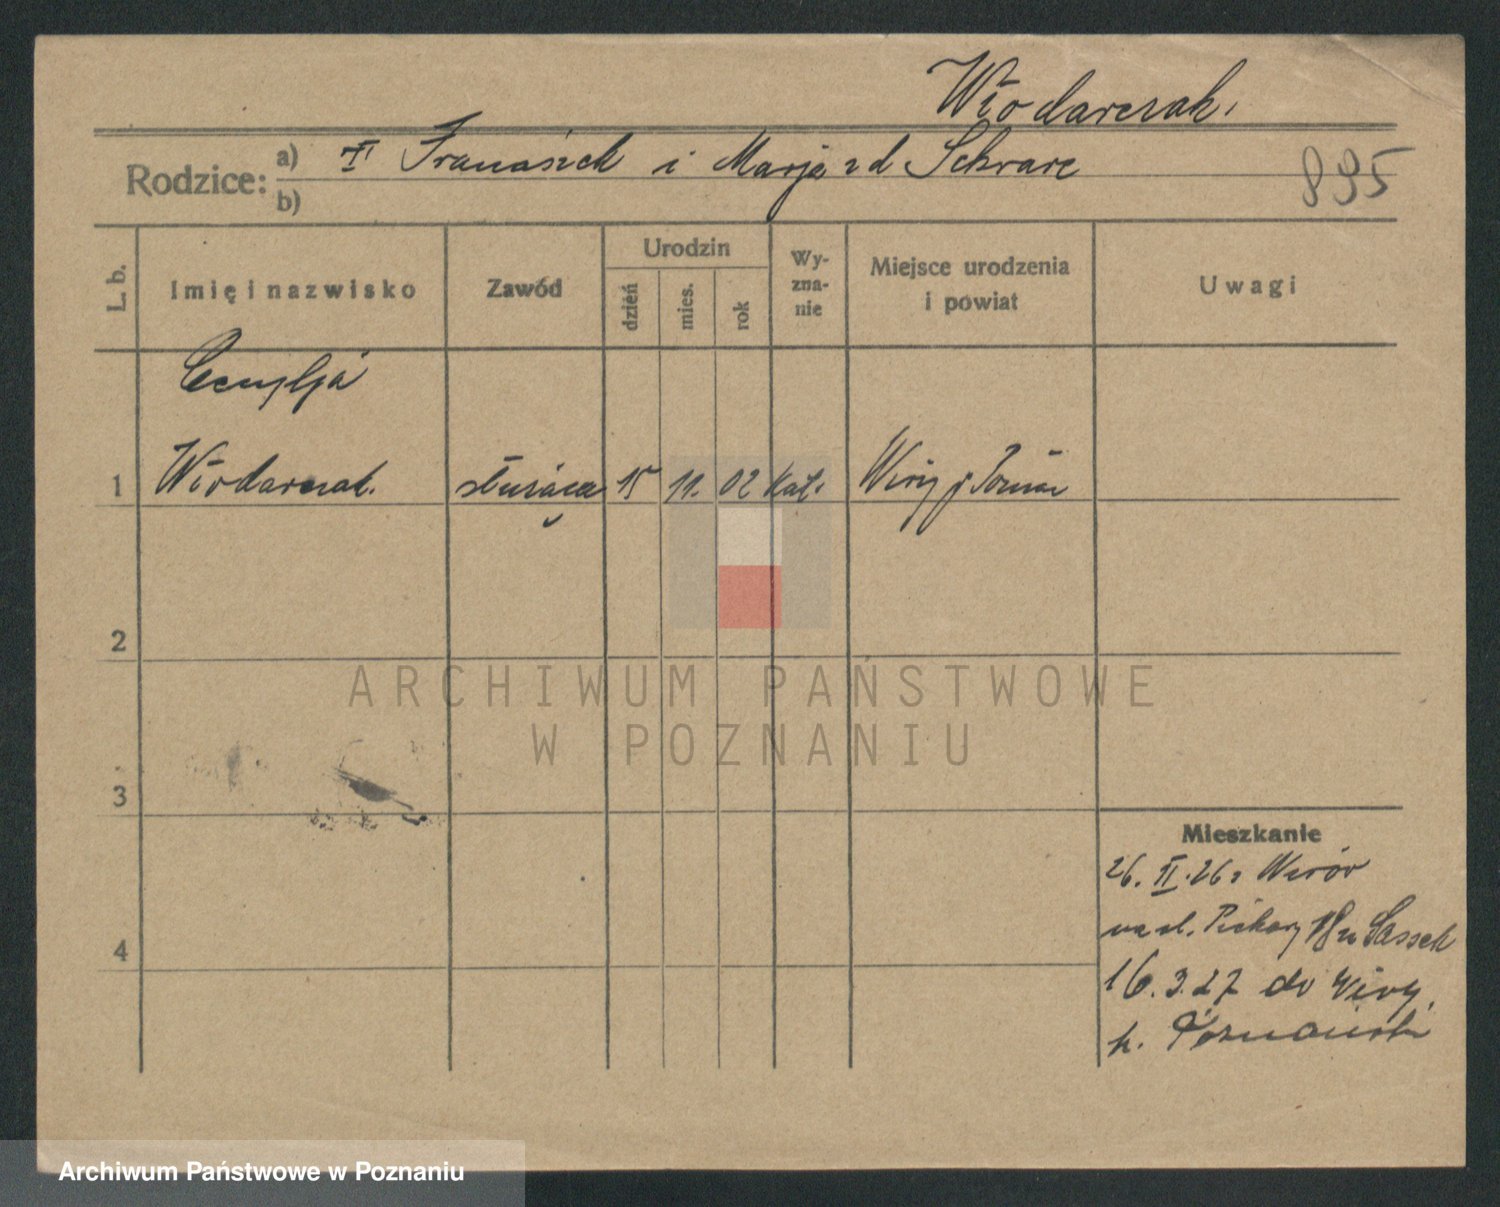 Włodarczak.
Rodzice: a) Franciszek i Marja z d Schwarc
b)
895
L. b.
Imię i nazwisko
Zawód
Urodzin
dzień
mies.
rok
Wy-
zna-
nie
Miejsce urodzenia
i powiat
Uwagi
Cecylja
1 Włodarczak. służąca 15 11. 02 kat. Wiry p Poznań
2
3
4
ARCHIWUM PAŃSTWOWE
W POZNANIU
Mieszkanie
26. II. 26 z Wirów
na ul. Piekary 18
16.3.27 do Wiry,
p. Poznański
Archiwum Państwowe w Poznaniu